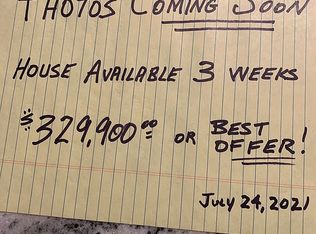 PHOTOS COMING SOON
HOUSE AVAILABLE 3 WEEKS
$329,900.00 OR BEST OFFER!
July 24, 2021